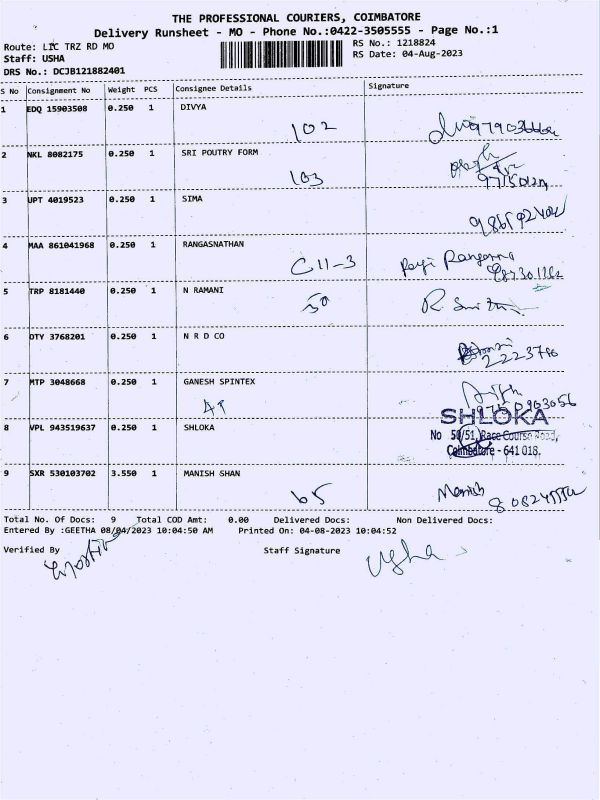 THE PROFESSIONAL COURIERS, COIMBATORE
Delivery Runsheet - MO - Phone No.:0422-3505555 - Page No.:1
Route: LIC TRZ RD MO
RS No.: 1218824
Staff: USHA
RS Date: 04-Aug-2023
DRS No.: DCJB121882401
S No Consignment No Weight PCS Consignee Details Signature
1 EDQ 15903508 0.250 1 DIVYA
102
2 NKL 8082175 0.250 1 SRI POUTRY FORM
103
3 UPT 4019523 0.250 1 SIMA
4 MAA 861041968 0.250 1 RANGASNATHAN
C 11-3
5 TRP 8181440 0.250 1 N RAMANI
50
6 OTY 3768201 0.250 1 N R D CO
7 MTP 3048668 0.250 1 GANESH SPINTEX
8 VPL 943519637 0.250 1 SHLOKA
SHLOKA
No 50/51, Race Course Road,
Coimbatore - 641 018.
9 SXR 530103702 3.550 1 MANISH SHAN
65 Manish
Total No. Of Docs: 9 Total COD Amt: 0.00 Delivered Docs: Non Delivered Docs:
Entered By :GEETHA 08/04/2023 10:04:50 AM Printed On: 04-08-2023 10:04:52
Verified By Staff Signature
Usha